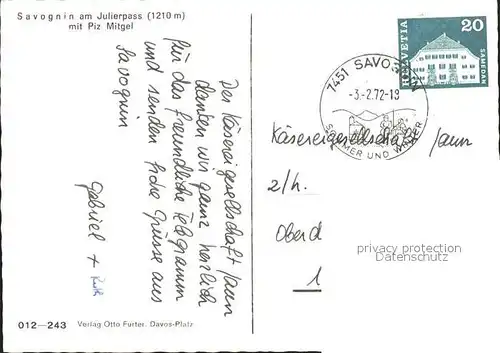 Savognin am Julierpass (1210 m)
mit Piz Mitgel
Der Käsereigesellschaft Jaun
danken wir ganz herzlich
für das freundliche Telegramm
und senden frohe Grüsse aus
Savognin
Gabriel + Ruth
012—243 Verlag Otto Furter, Davos-Platz
HELVETIA
20
SAMEDAN
7451 SAVOGNIN
-3.-2.72-18
SOMMER UND WINTER
Käsereigesellschaft Jaun
z/h.
Oberd
1
privacy protection
Datenschutz